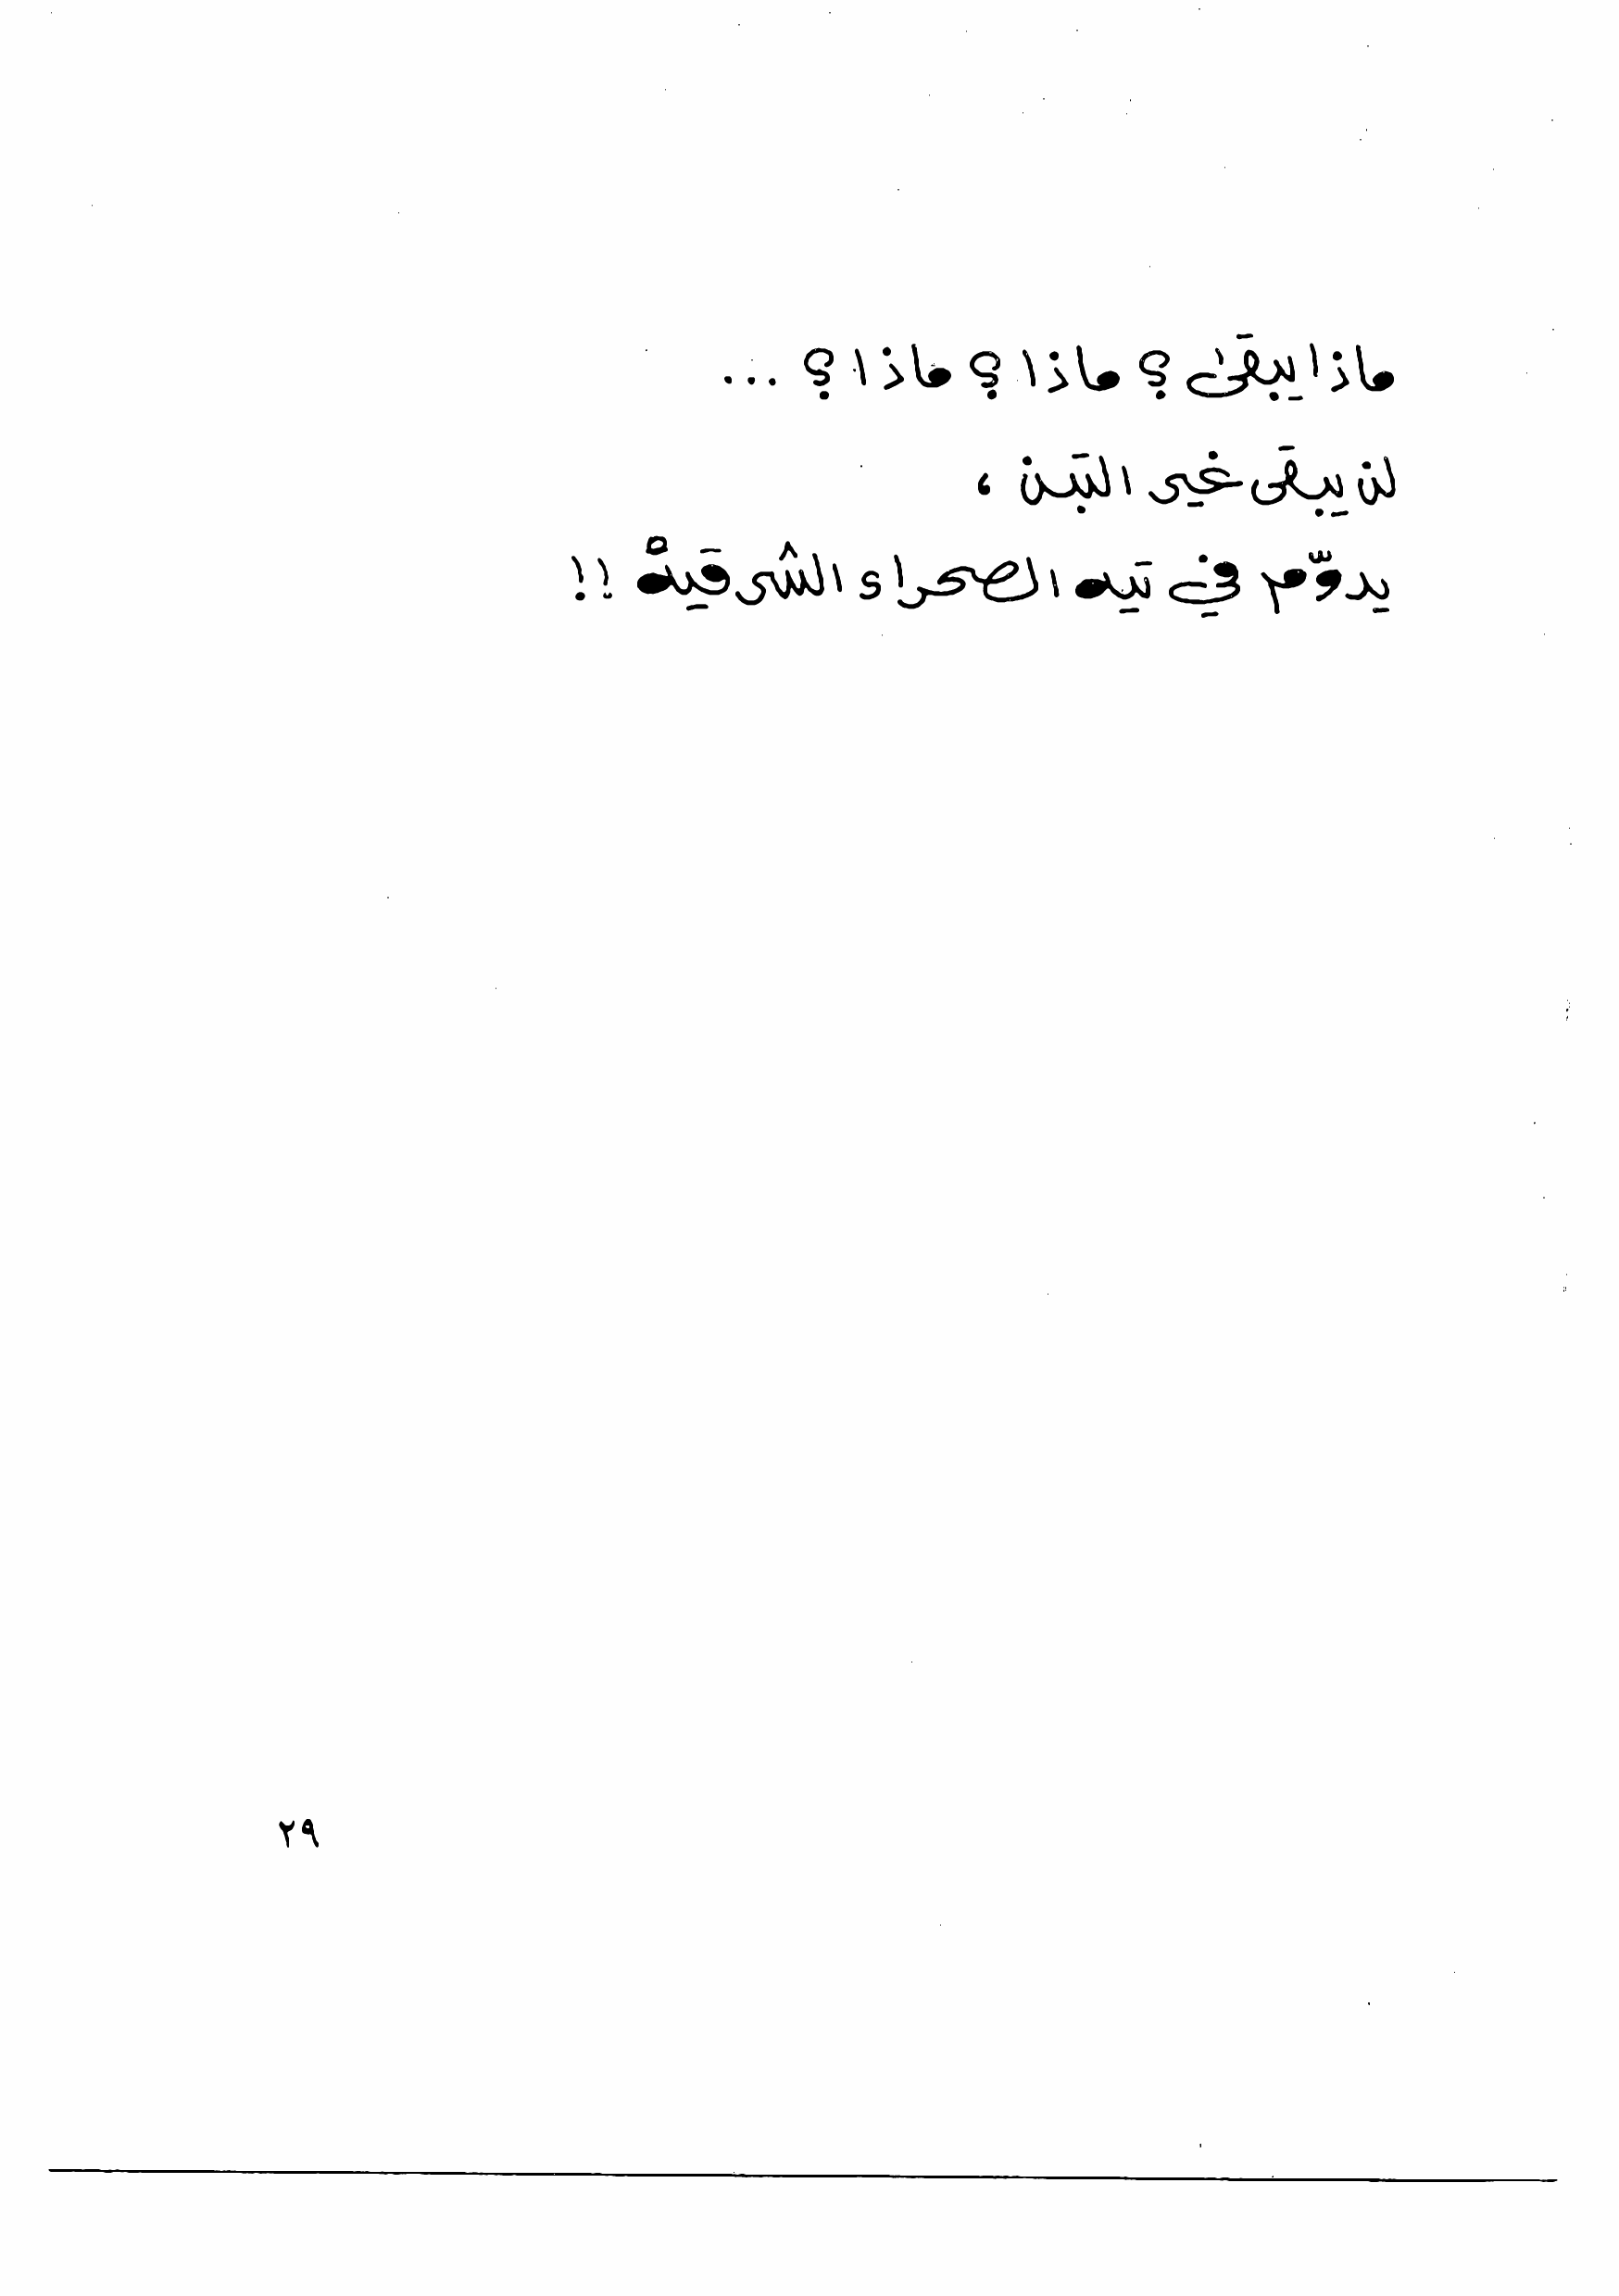 ماذا يبقىٰ؟ ماذا؟ ماذا؟ ...
لن يبقى غير التبن ،
يدوّم في تيه الصحراء الشرقيهْ !!
٢٩